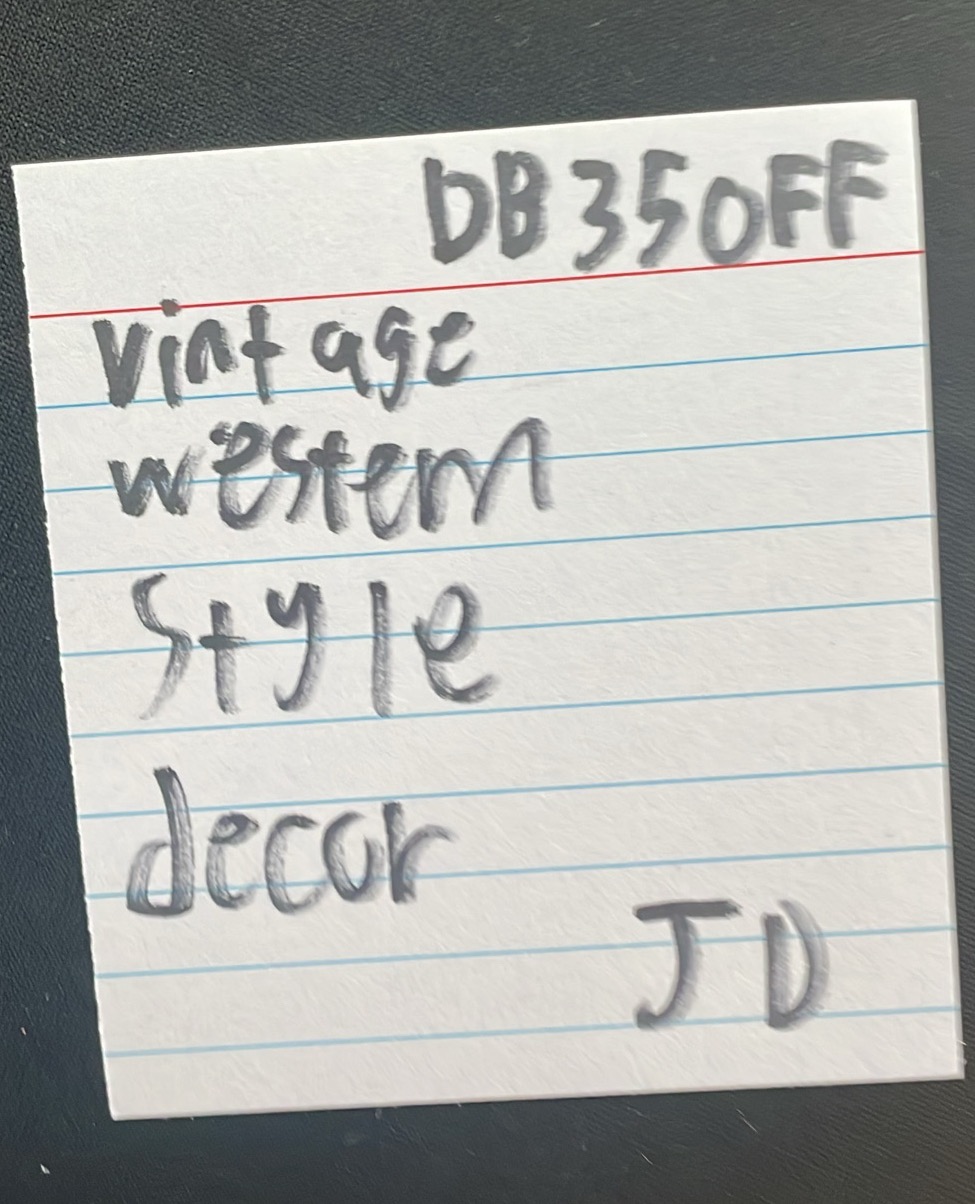 DB35OFF
vintage
western
style
decor
JD